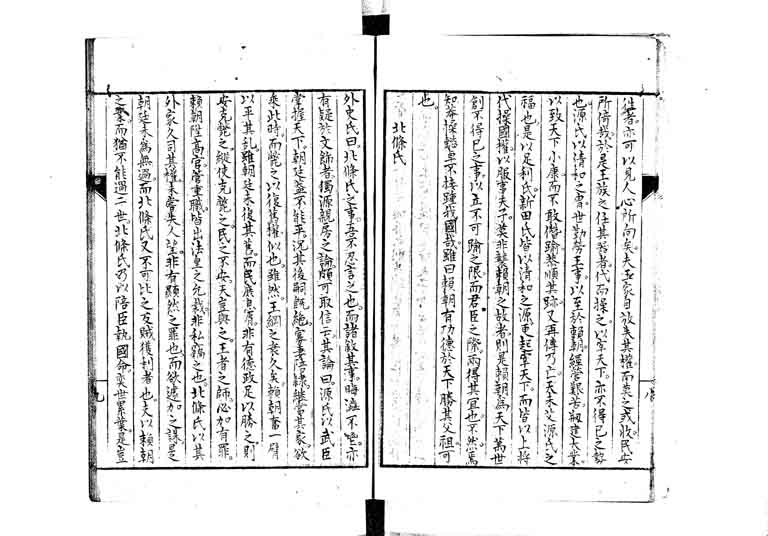 往者亦可以見人心所向矣夫王家自放失其權而莫之或收民安
所倚哉於是王族之任其咎者代而操之以宰天下亦不得已之勢
也源氏以清和之冑世勤勞王事以至於賴朝經營艱苦剏建大業
以致天下小康而不敢僭踰恭順其跡又再傳乃亡天未艾源氏之
福也是以足利氏新田氏皆以清和之源更起宰天下而皆以上將
代操國權以服事天子莫非賴朝之故者則是賴朝為天下萬世
創不得已之事以立不可踰之限而君臣之際兩得其宜也不然
知莽操懿卓不接踵我國哉雖曰賴朝有功德於天下勝其父祖可
也
北條氏
外史氏曰北條氏之事吾不忍言之也而諸敘其事晦澁不
有疑於文飾者獨源親房之論頗可取信云其論曰源氏以武臣
掌握天下朝廷蓋不能平況其後嗣既絕寡妻陪隸繼管其家欲
乘此時而斃之以復舊權似也雖然王綱之衰久矣賴朝奮一臂
以平其亂雖朝廷未復其舊而民庶息肩非有德政足以勝之則
安克斃之縱使克斃之民之不安天豈與之王者之師必加有罪
賴朝陞高官管重職皆出法皇之允裁非私竊之也北條氏以其
外家久司其權未嘗失人望非有顯然之罪也而欲遽加之誅是
朝廷未為無過而北條氏又不可比之反賊獲利者也夫以賴朝
之業而猶不能過二世北條氏乃以陪臣執國命奕世累業是豈